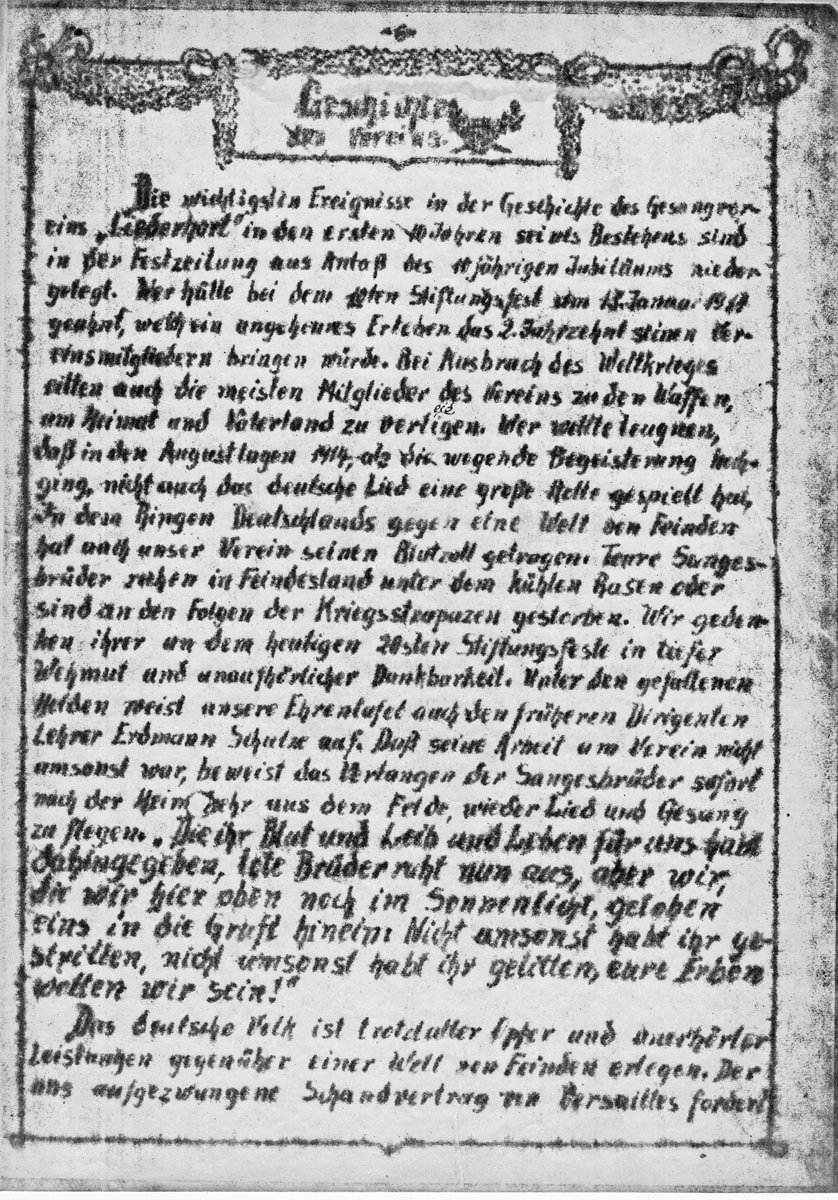 -6-
Geschichte
des Vereins.
Die wichtigsten Ereignisse in der Geschichte des Gesangver-
eins „Liederhort" in den ersten 10 Jahren seines Bestehens sind
in der Festzeitung aus Anlaß des 10 jährigen Jubiläums nieder
gelegt. Wer hätte bei dem 10ten Stiftungsfest am 15. Januar 1911
geahnt, welch ein ungeheures Erleben das 2. Jahrzehnt seinen Ver-
einsmitgliedern bringen würde. Bei Ausbruch des Weltkrieges
eilten auch die meisten Mitglieder des Vereins zu den Waffen,
um Heimat und Vaterland zu verteidigen. Wer wollte leugnen,
daß in den Augusttagen 1914, als die wogende Begeisterung hoch-
ging, nicht auch das deutsche Lied eine große Rolle gespielt hat,
In dem Ringen Deutschlands gegen eine Welt von Feinden
hat auch unser Verein seinen Blutzoll getragen. Teure Sanges-
brüder ruhen in Feindesland unter dem kühlen Rasen oder
sind an den Folgen der Kriegsstrapazen gestorben. Wir geden-
ken ihrer an dem heutigen 20sten Stiftungsfeste in tiefer
Wehmut und unaufhörlicher Dankbarkeit. Unter den gefallenen
Helden weist unsere Ehrentafel auch den früheren Dirigenten
Lehrer Erdmann Schulze auf. Daß seine Arbeit am Verein nicht
umsonst war, beweist das Verlangen der Sangesbrüder sofort
nach der Heimkehr aus dem Felde, wieder Lied und Gesang
zu pflegen. „Die ihr Blut und Leib und Leben für uns habt
dahingegeben, tote Brüder ruht nun aus, aber wir,
die wir hier oben noch im Sonnenlicht, geloben
eins in die Gruft hinein: Nicht umsonst habt ihr ge-
stritten, nicht umsonst habt ihr gelitten, eure Erben
wollen wir sein!"
Das deutsche Volk ist trotz aller Opfer und unerhörter
Leistungen gegenüber einer Welt von Feinden erlegen. Der
uns aufgezwungene Schandvertrag von Versailles fordert